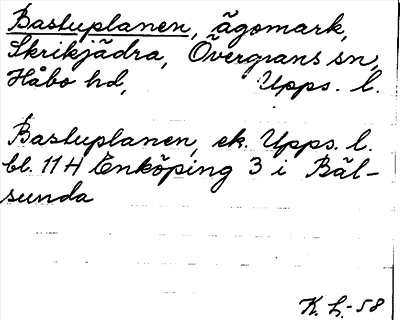 Bastuplanen, ägomark,
Skrikjädra, Övergrans sn,
Håbo hd, Upps. l.
Bastuplanen, ek. Upps. l.
bl. 114 Enköping 3 i Bäl-
sunda
K. L. -58